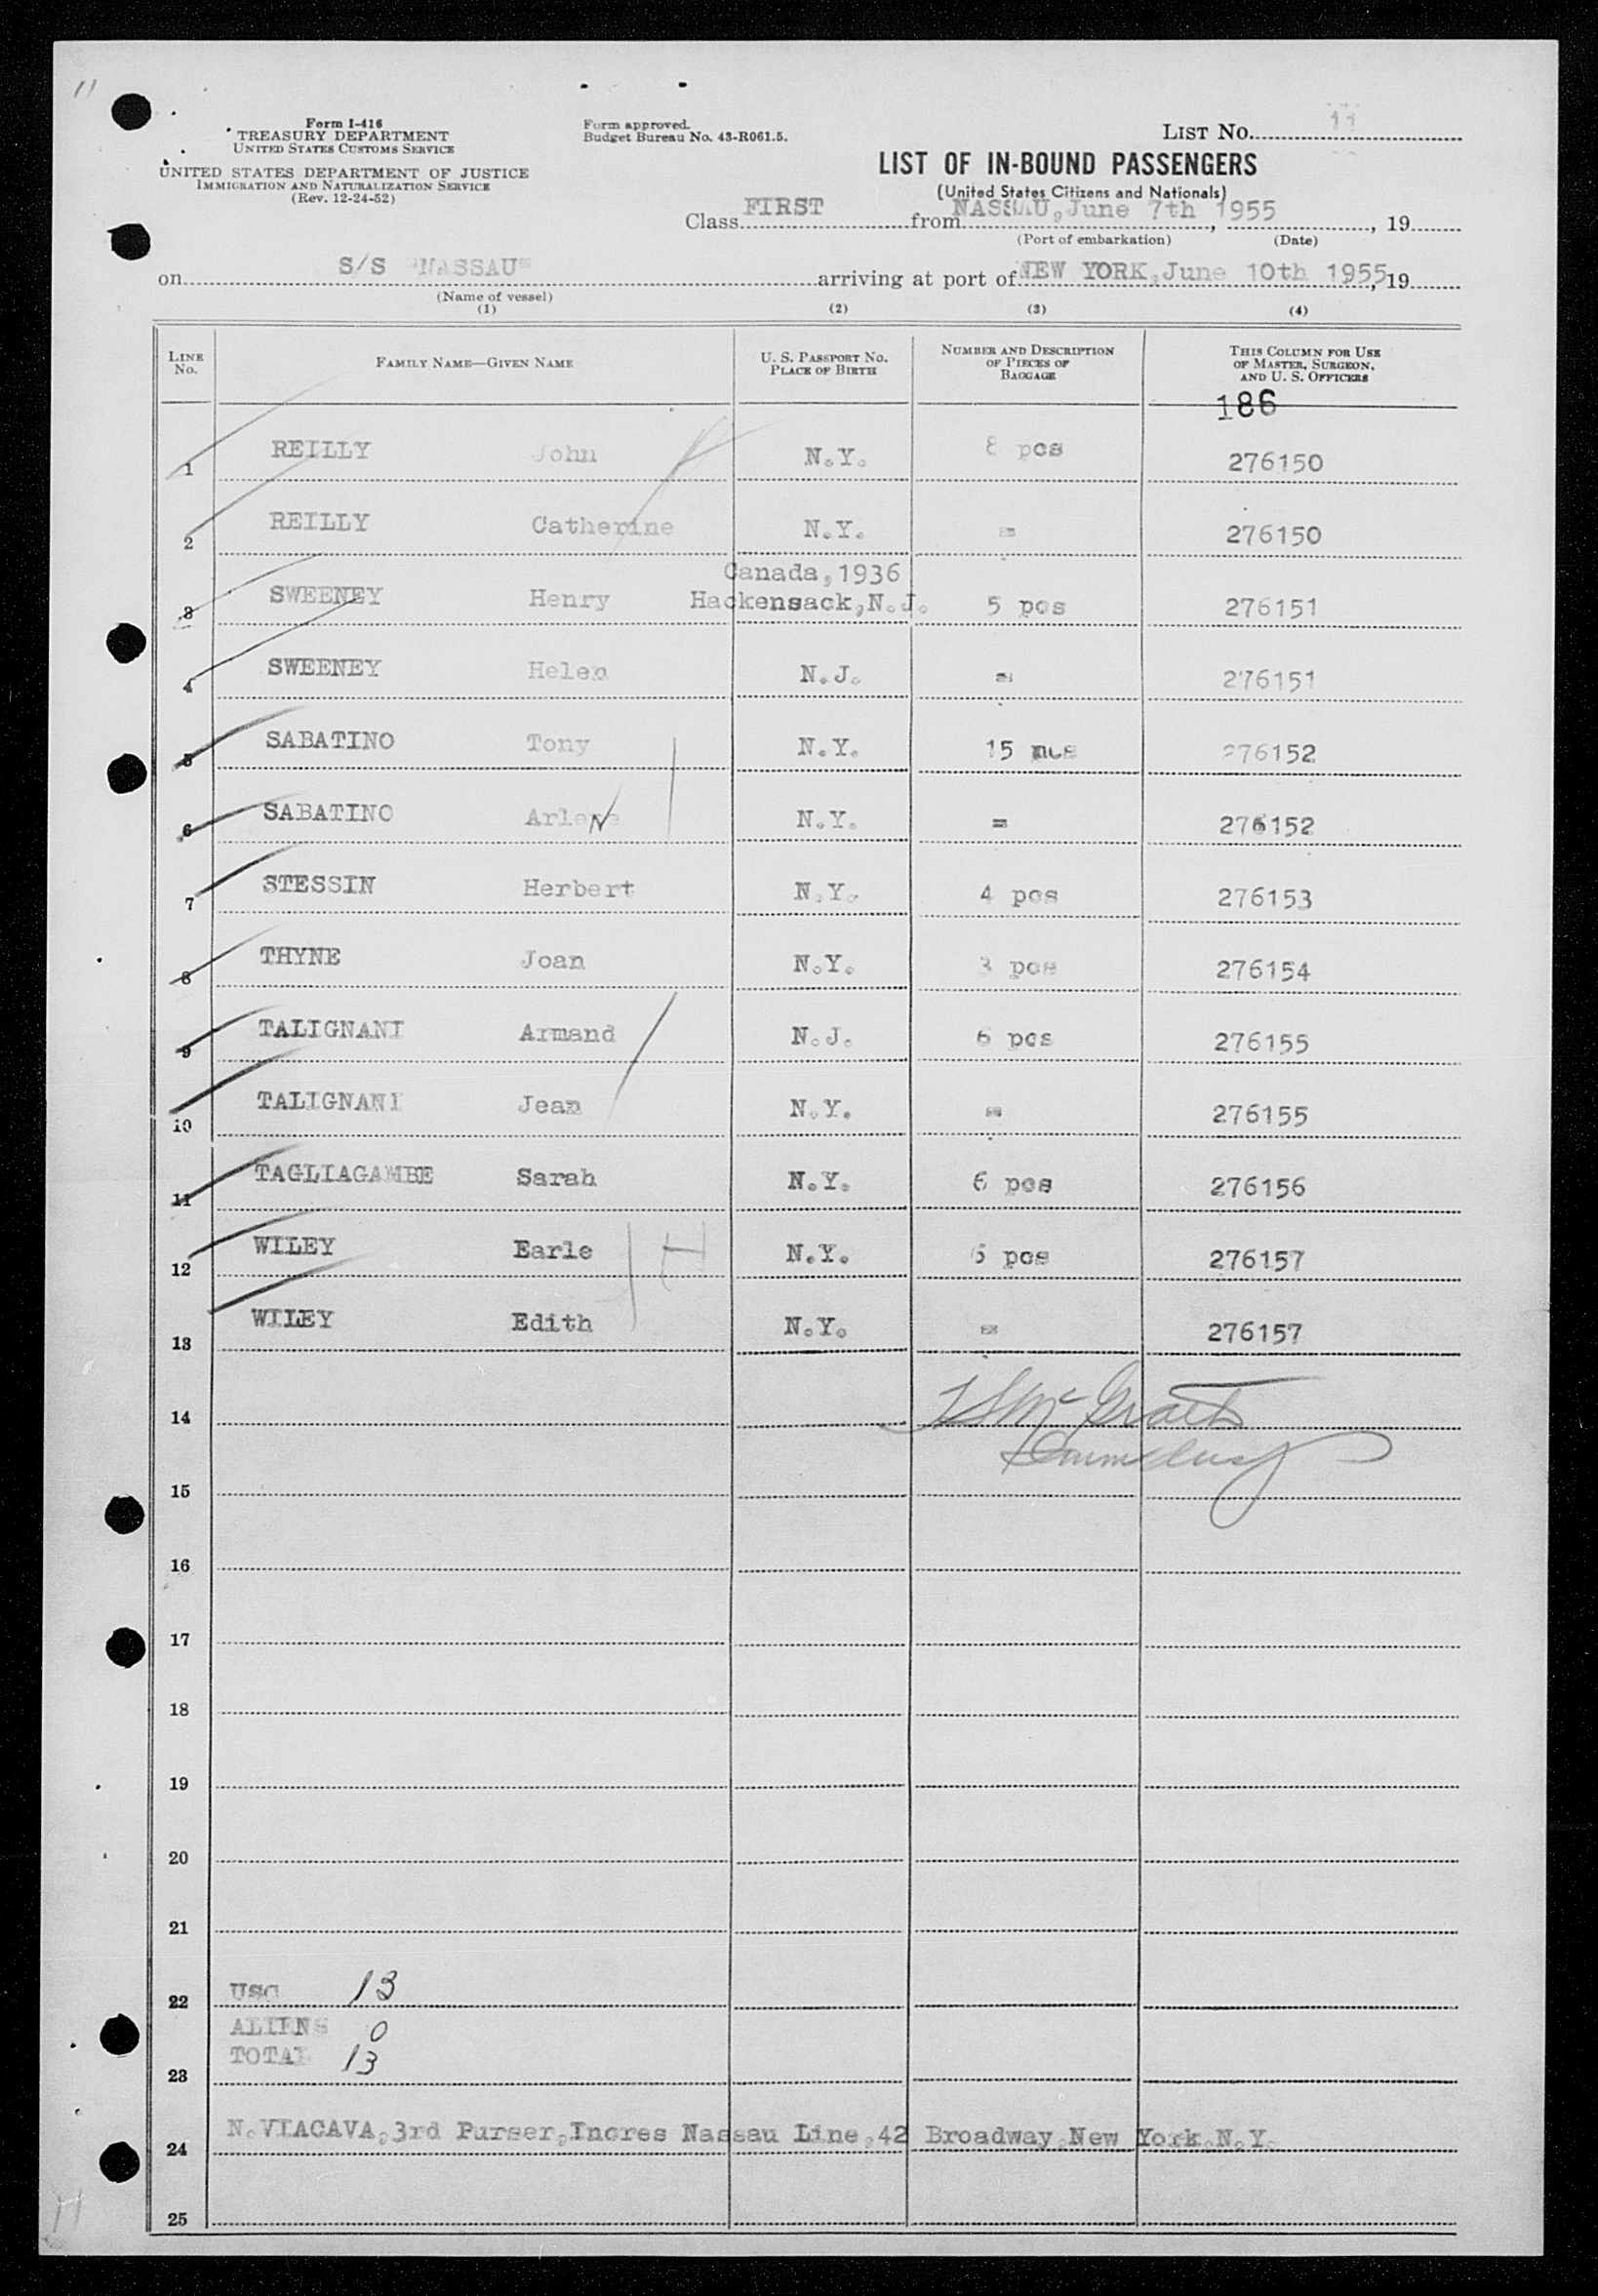 11
Form I-416
TREASURY DEPARTMENT
UNITED STATES CUSTOMS SERVICE
UNITED STATES DEPARTMENT OF JUSTICE
IMMIGRATION AND NATURALIZATION SERVICE
(Rev. 12-24-52)
Form approved.
Budget Bureau No. 43-R061.5.
LIST NO. 11
LIST OF IN-BOUND PASSENGERS
(United States Citizens and Nationals)
Class FIRST from NASSAU, June 7th 1955, 19
(Port of embarkation) (Date)
on S/S "NASSAU" arriving at port of NEW YORK, June 10th 1955, 19
(Name of vessel)
(1) (2) (3) (4)
LINE NO. FAMILY NAME—GIVEN NAME U. S. PASSPORT NO. PLACE OF BIRTH NUMBER AND DESCRIPTION OF PIECES OF BAGGAGE THIS COLUMN FOR USE OF MASTER, SURGEON, AND U. S. OFFICERS
186
1 REILLY John N.Y. 8 pcs 276150
2 REILLY Catherine N.Y. = 276150
Canada, 1936
3 SWEENEY Henry Hackensack, N.J. 5 pcs 276151
4 SWEENEY Helen N.J. = 276151
5 SABATINO Tony N.Y. 15 pcs 276152
6 SABATINO Arlene N.Y. = 276152
7 STESSIN Herbert N.Y. 4 pcs 276153
8 THYNE Joan N.Y. 3 pcs 276154
9 TALIGNANI Armand N.J. 6 pcs 276155
10 TALIGNANI Jean N.Y. = 276155
11 TAGLIAGAMBE Sarah N.Y. 6 pcs 276156
12 WILEY Earle N.Y. 6 pcs 276157
13 WILEY Edith N.Y. = 276157
14 McGrath
15
16
17
18
19
20
21
22 USC 13
ALIENS 0
TOTAL 13
23
24 N.VIACAVA, 3rd Purser, Incres Nassau Line, 42 Broadway, New York, N.Y.
25